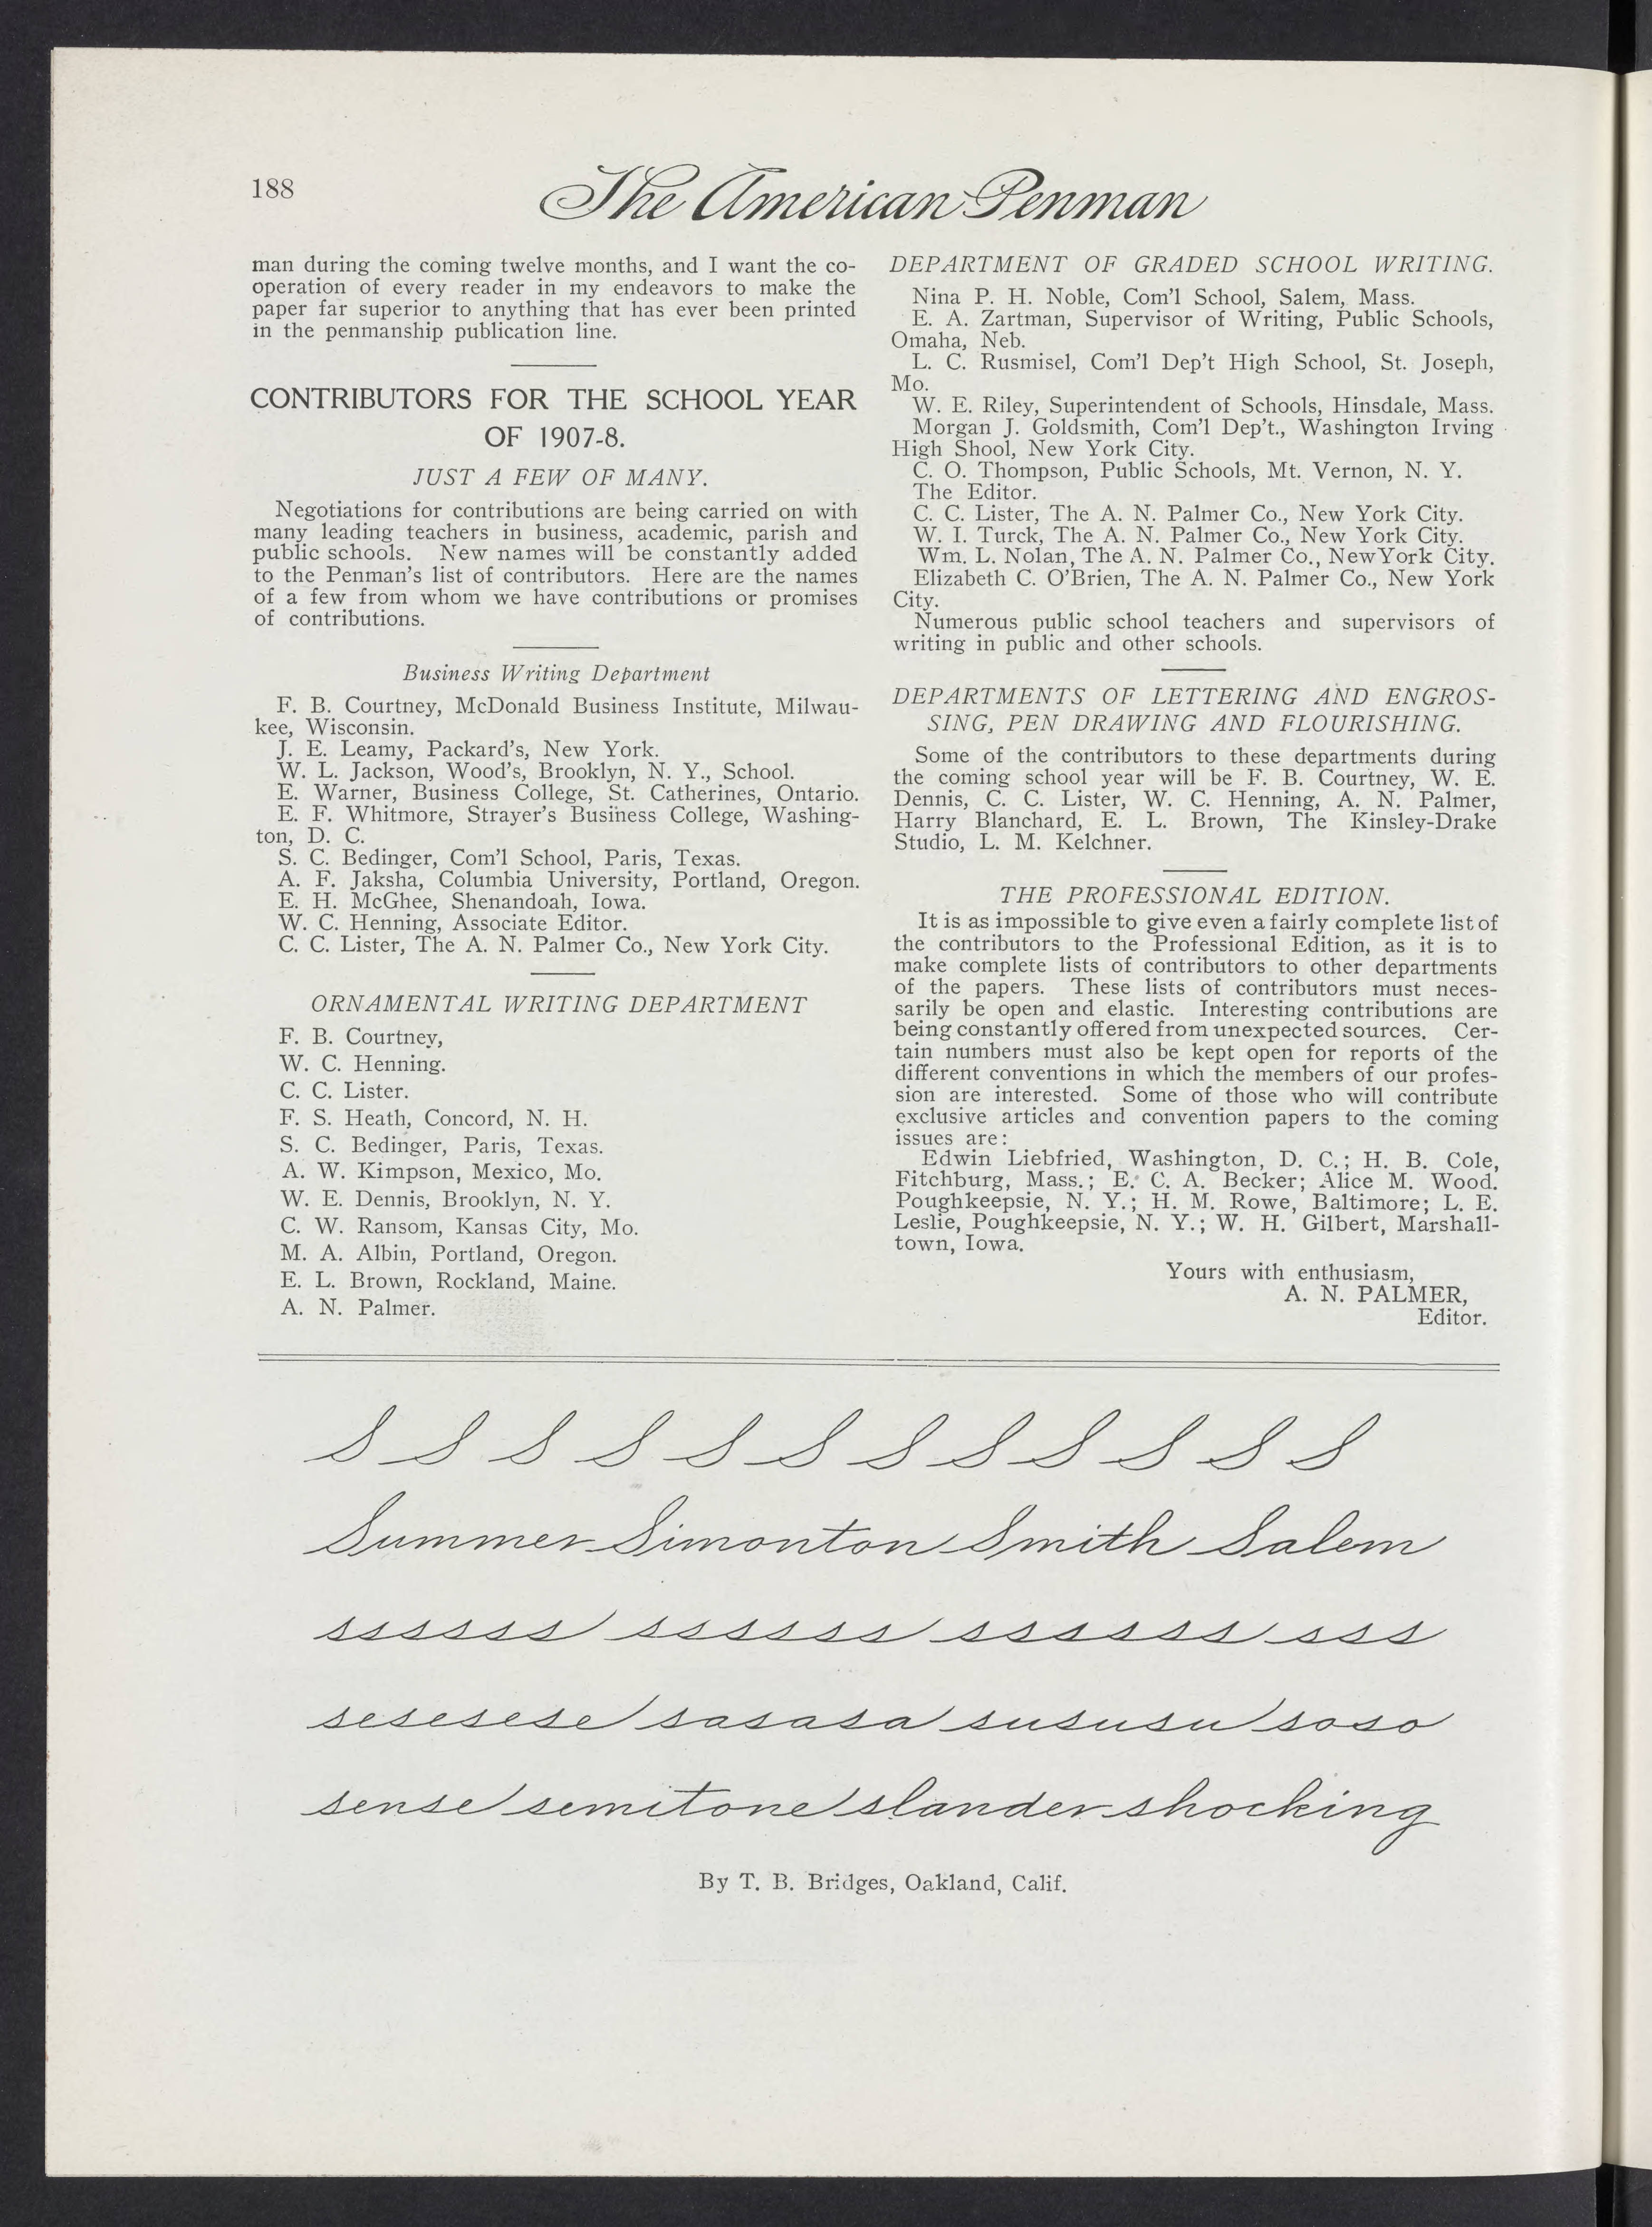 188
The American Penman
man during the coming twelve months, and I want the co-
operation of every reader in my endeavors to make the
paper far superior to anything that has ever been printed
in the penmanship publication line.
CONTRIBUTORS FOR THE SCHOOL YEAR
OF 1907-8.
JUST A FEW OF MANY.
Negotiations for contributions are being carried on with
many leading teachers in business, academic, parish and
public schools. New names will be constantly added
to the Penman's list of contributors. Here are the names
of a few from whom we have contributions or promises
of contributions.
Business Writing Department
F. B. Courtney, McDonald Business Institute, Milwau-
kee, Wisconsin.
J. E. Leamy, Packard's, New York.
W. L. Jackson, Wood's, Brooklyn, N. Y., School.
E. Warner, Business College, St. Catherines, Ontario.
E. F. Whitmore, Strayer's Business College, Washing-
ton, D. C.
S. C. Bedinger, Com'l School, Paris, Texas.
A. F. Jaksha, Columbia University, Portland, Oregon.
E. H. McGhee, Shenandoah, Iowa.
W. C. Henning, Associate Editor.
C. C. Lister, The A. N. Palmer Co., New York City.
ORNAMENTAL WRITING DEPARTMENT
F. B. Courtney,
W. C. Henning.
C. C. Lister.
F. S. Heath, Concord, N. H.
S. C. Bedinger, Paris, Texas.
A. W. Kimpson, Mexico, Mo.
W. E. Dennis, Brooklyn, N. Y.
C. W. Ransom, Kansas City, Mo.
M. A. Albin, Portland, Oregon.
E. L. Brown, Rockland, Maine.
A. N. Palmer.
DEPARTMENT OF GRADED SCHOOL WRITING.
Nina P. H. Noble, Com'l School, Salem, Mass.
E. A. Zartman, Supervisor of Writing, Public Schools,
Omaha, Neb.
L. C. Rusmisel, Com'l Dep't High School, St. Joseph,
Mo.
W. E. Riley, Superintendent of Schools, Hinsdale, Mass.
Morgan J. Goldsmith, Com'l Dep't., Washington Irving
High Shool, New York City.
C. O. Thompson, Public Schools, Mt. Vernon, N. Y.
The Editor.
C. C. Lister, The A. N. Palmer Co., New York City.
W. I. Turck, The A. N. Palmer Co., New York City.
Wm. L. Nolan, The A. N. Palmer Co., NewYork City.
Elizabeth C. O'Brien, The A. N. Palmer Co., New York
City.
Numerous public school teachers and supervisors of
writing in public and other schools.
DEPARTMENTS OF LETTERING AND ENGROS-
SING, PEN DRAWING AND FLOURISHING.
Some of the contributors to these departments during
the coming school year will be F. B. Courtney, W. E.
Dennis, C. C. Lister, W. C. Henning, A. N. Palmer,
Harry Blanchard, E. L. Brown, The Kinsley-Drake
Studio, L. M. Kelchner.
THE PROFESSIONAL EDITION.
It is as impossible to give even a fairly complete list of
the contributors to the Professional Edition, as it is to
make complete lists of contributors to other departments
of the papers. These lists of contributors must neces-
sarily be open and elastic. Interesting contributions are
being constantly offered from unexpected sources. Cer-
tain numbers must also be kept open for reports of the
different conventions in which the members of our profes-
sion are interested. Some of those who will contribute
exclusive articles and convention papers to the coming
issues are:
Edwin Liebfried, Washington, D. C.; H. B. Cole,
Fitchburg, Mass.; E. C. A. Becker; Alice M. Wood.
Poughkeepsie, N. Y.; H. M. Rowe, Baltimore; L. E.
Leslie, Poughkeepsie, N. Y.; W. H. Gilbert, Marshall-
town, Iowa.
Yours with enthusiasm,
A. N. PALMER,
Editor.
S S S S S S S S S S S S
Summer Simonton Smith Salem
ssssss ssssss sssssss sss
sesesese sasasa sususu soso
sense semitone slander shocking
By T. B. Bridges, Oakland, Calif.